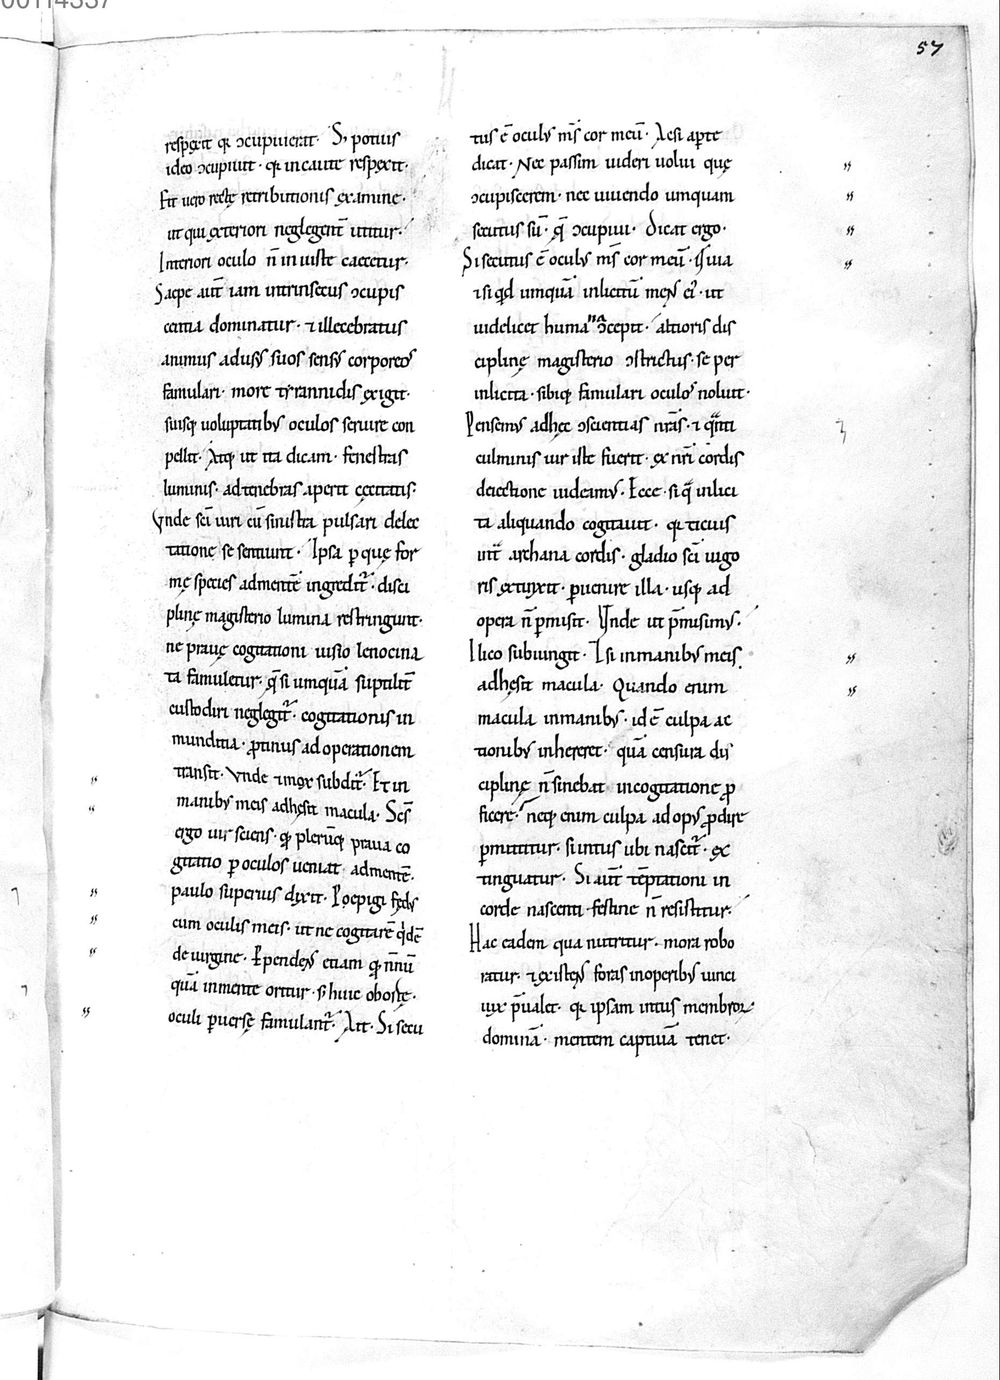 00114337
57
respexit q̨ ɔcupiuerit· S; potius
ideo ɔcupiuit· q̨ incaute respexit·
Fit uero recte retributionis examine·
ut qui exteriori neglegent̄ utitur·
Interiori oculo n̄ in iuste caecetur·
Saepe aut̄ iam intrinsecus ɔcupis
centia dominatur· ⁊ illecebratus
animus ad usus suos sensus corporeos
famulari· more tyrannidis exigit·
suisq; uoluptatibus oculos seruire con
pellit· Atq; ut ita dicam· fenestras
luminis· ad tenebras aperit cęcitatis·
Vnde sc̄i uiri cū sinistra pulsari delec
tatione se sentiunt· Ipsa p que for
mę species ad mentē ingredit̄· disci
plinę magisterio lumina restringunt·
ne prauę cogitationi uisio lenocina
ta famuletur· q̄ si umquā suptilit̄
custodiri neglegit̄· cogitationis in
munditia· protinus ad operationem
transit· Vnde ⁊ mox subdit̄· Et in
manibus meis adhesit macula· Sc̄s
ergo uir sciens· q̨ plerūq; praua co
gitatio p oculos ueniat ad mentē·
paulo superius dixit· Pepigi fędus
cum oculis meis· ut ne cogitarē qͥdē
de uirgine· Perpendens etiam q̨ nn̄ū
quā in mente oritur· s; huic oboste·
oculi puerse famulant̄· Ait· Si secu
tus ē oculus ms̄ cor meū· Ac si apte
dicat· Nec passim uideri uolui quę
ɔcupiscerem· nec uiuendo umquam
secutus sū· q̄ ɔcupiui· Dicat ergo·
Si secutus ē oculus ms̄ cor meū· Quia
⁊ si qd umquā inlicitū mens ei· ut
uidelicet humana ɔcepit· altioris dis
ciplinę magisterio ɔstrictus· se per
inlicita· sibiq; famulari oculos noluit·
Pensemus adhęc ɔscientias nr̄as· ⁊ qͣnti
culminis uir iste fuerit· ex nr̄i cordis
deiectione uideamus· Ecce· si q̄ inlici
ta aliquando cogitauit· q̨ ticuis
int̄ archana cordis· gladio sc̄i uigo
ris extinxit· puenire illa· usq; ad
opera n̄ pmisit· Vnde ut p̄misimus·
Ilico subiungit· Et si in manibus meis
adhesit macula· Quando enim
macula in manibus· id ē culpa ac
tionibus inhereret· quā censura dis
ciplinę n̄ sinebat in cogitatione p
ficere· neq; enim culpa ad opus prodire
pmittitur· si intus ubi nascit̄· ex
tinguatur· Si aut̄ tēptationi in
corde nascenti festine n̄ resistitur·
Hac eadem qua nutritur· mora robo
ratur· ⁊ existens foras in operibus uinci
uix p̄ualet· q̨ ipsam intus membroꝝ
dominā· mentem captiuā tenet·